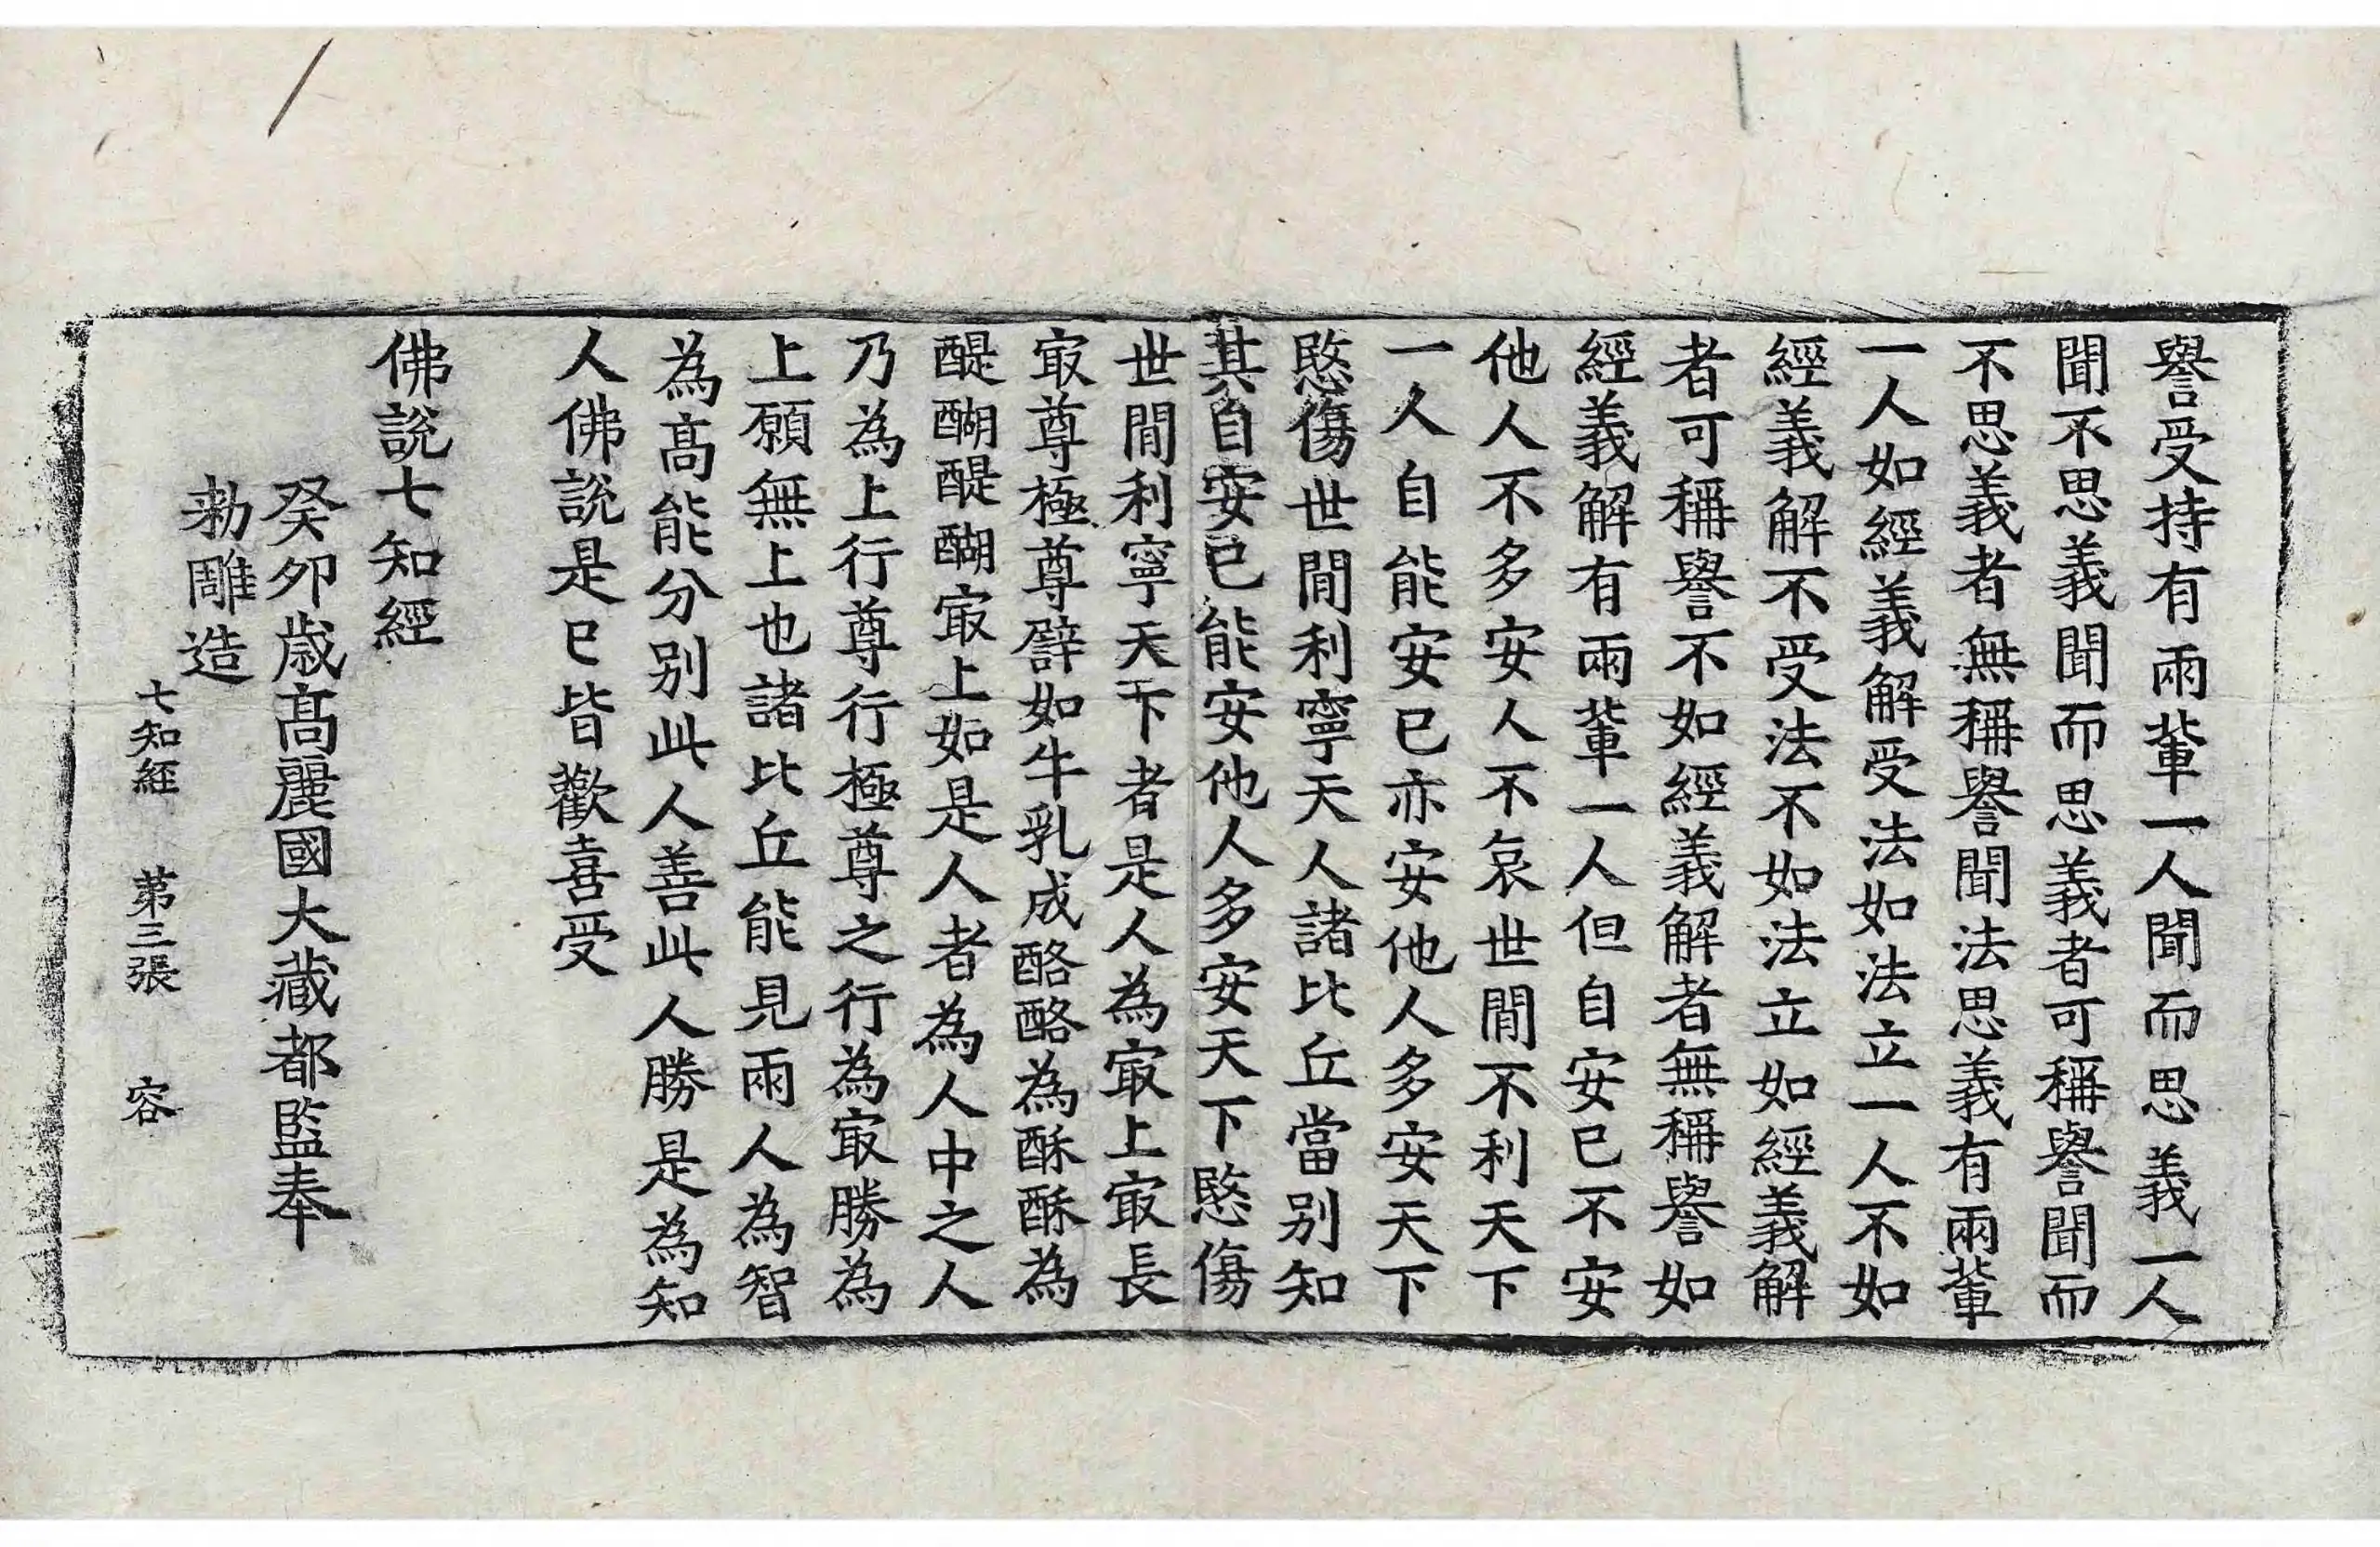 譽受持有兩輩一人聞而思義一人
聞不思義聞而思義者可稱譽聞而
不思義者無稱譽聞法思義有兩輩
一人如經義解受法如法立一人不如
經義解不受法不如法立如經義解
者可稱譽不如經義解者無稱譽如
經義解有兩輩一人但自安己不安
他人不多安人不哀世閒不利天下
一人自能安已亦安他人多安天下
愍傷世閒利寧天人諸比丘當別知
其自安已能安他人多安天下愍傷
世閒利寧天下者是人為㝡上㝡長
㝡尊極尊譬如牛乳成酪酪為酥酥為
醍醐醍醐㝡上如是人者為人中之人
乃為上行尊行極尊之行為㝡勝為
上願無上也諸比丘能見兩人為智
為髙能分別此人善此人勝是為知
人佛說是已皆歡喜受
佛說七知經
癸卯歳髙麗國大藏都監奉
勑雕造
七知經 第三張 容